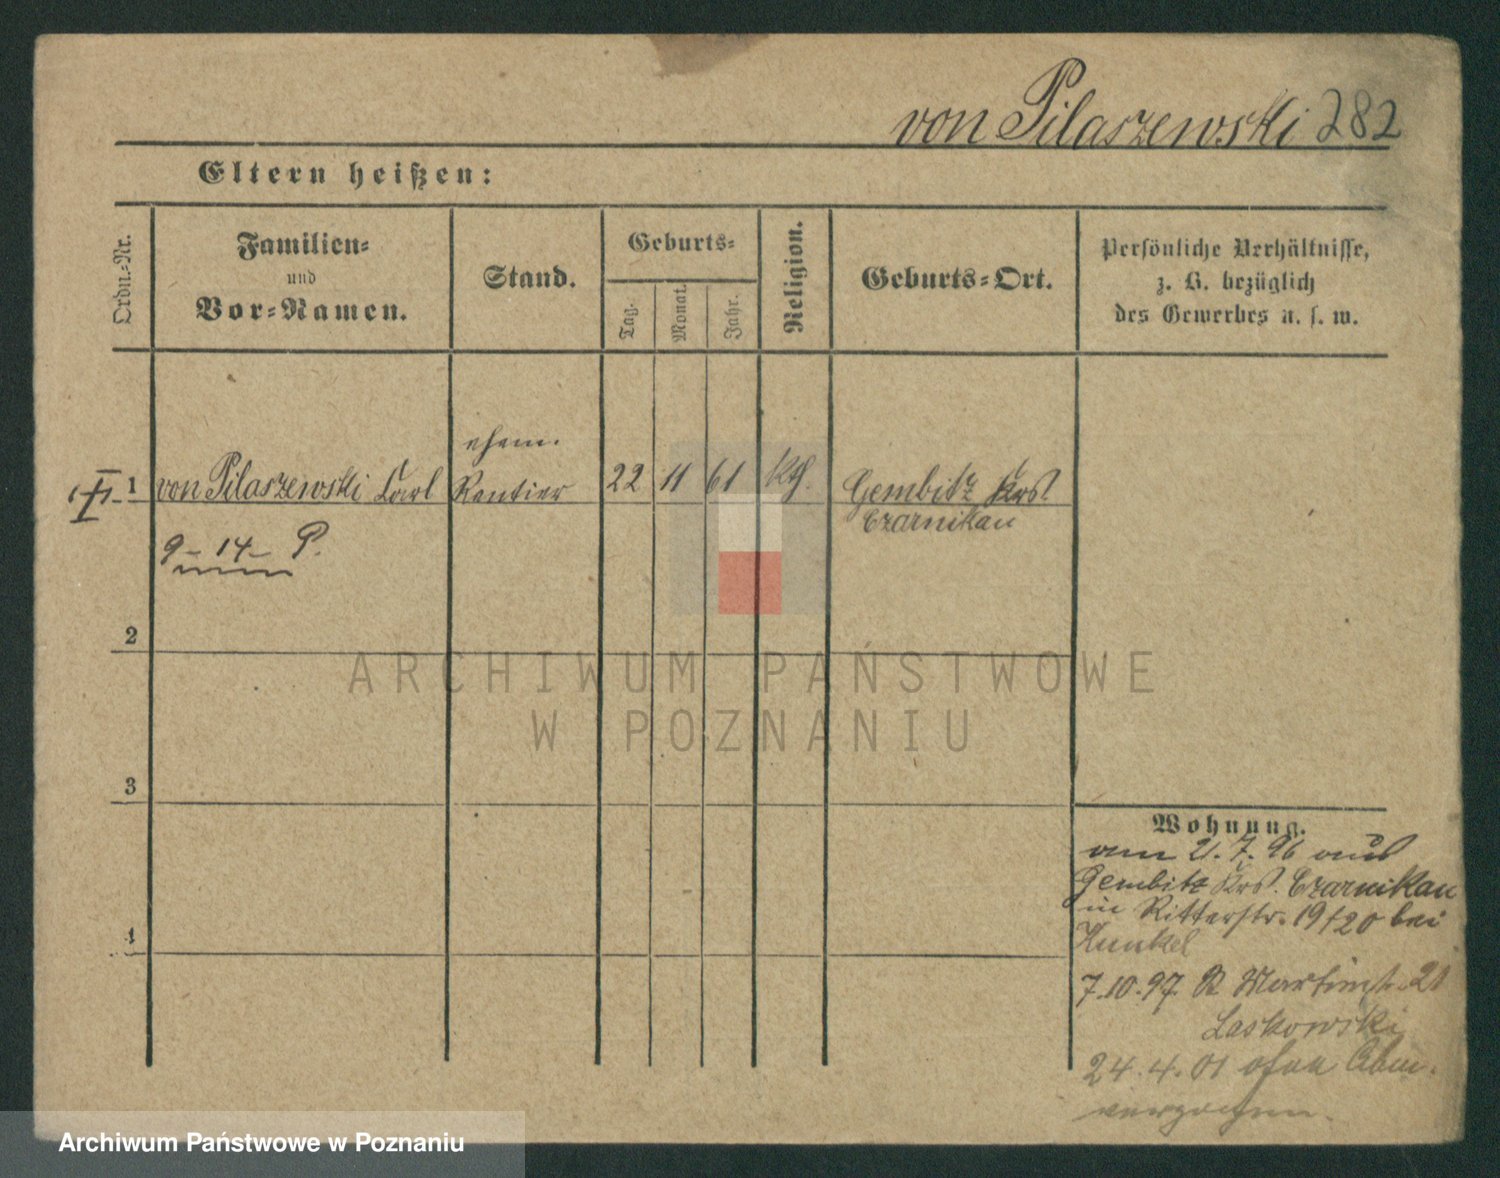 von Pilaszewski 282
Eltern heißen:
Ordn.-Nr.
Familien-
und
Vor-Namen.
Stand.
Geburts-
Tag.
Monat.
Jahr.
Religion.
Geburts-Ort.
Persönliche Verhältnisse,
z. B. bezüglich
des Gewerbes u. s. w.
ehem.
1 von Pilaszewski Carl Rentier 22 11 61 Kth. Gembitz Krs.
Czarnikau
9 - 14 - P.
2
ARCHIWUM PAŃSTWOWE
W POZNANIU
3
Wohnung.
am 21.7.96 aus
Gembitz Krs. Czarnikau
in Ritterstr. 19/20 bei
Kunkel
4
7.10.97. B Martinstr. 21
Laskowski
24.4.01 ohne Abm.
verzogen.
Archiwum Państwowe w Poznaniu